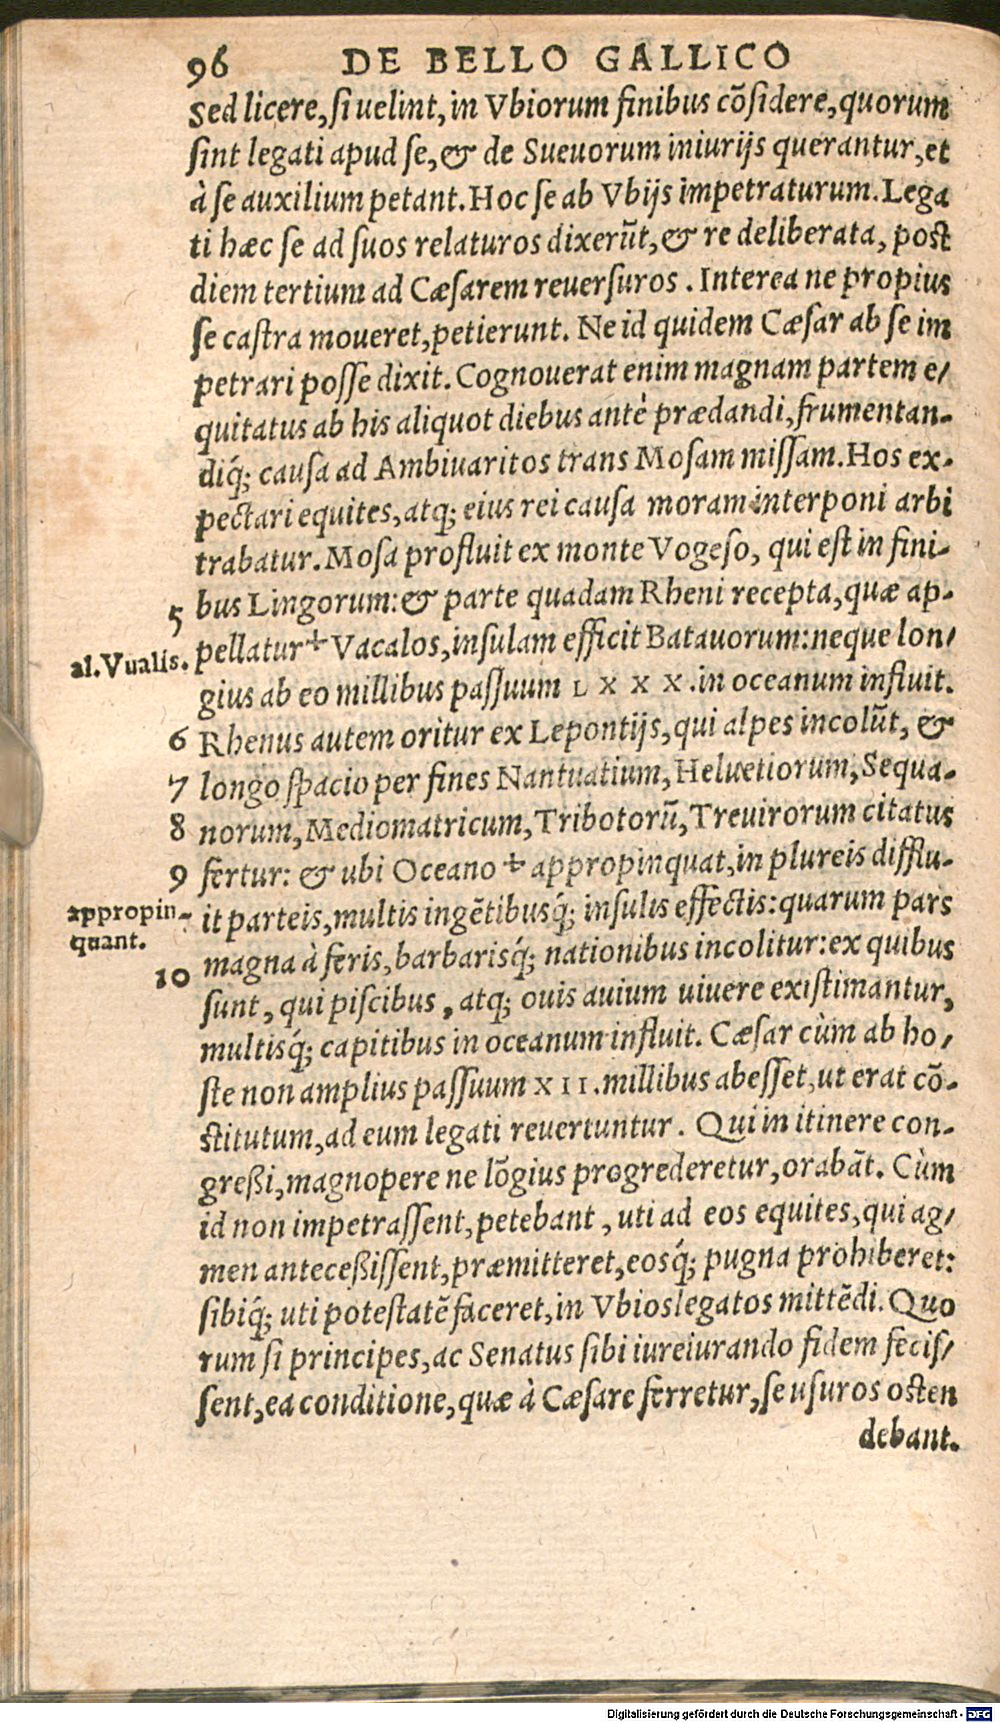 96 DE BELLO GALLICO
Sed licere, ſi uelint, in Vbiorum finibus cõſidere, quorum
ſint legati apud ſe, & de Sueuorum iniurijs querantur, et
à ſe auxilium petant. Hoc ſe ab Vbijs impetraturum. Lega
ti hæc ſe ad ſuos relaturos dixerũt, & re deliberata, poſt
diem tertium ad Cæſarem reuerſuros. Interea ne propius
ſe caſtra moueret, petierunt. Ne id quidem Cæſar ab ſe im
petrari poſſe dixit. Cognouerat enim magnam partem e/
quitatus ab his aliquot diebus antè prædandi, frumentan-
diq́; cauſa ad Ambiuaritos trans Moſam miſſam. Hos ex-
pectari equites, atq; eius rei cauſa moram interponi arbi
trabatur. Moſa profluit ex monte Vogeſo, qui eſt in fini-
5 bus Lingorum: & parte quadam Rheni recepta, quæ ap-
al. Vualis. pellatur + Vacalos, inſulam efficit Batauorum: neque lon/
gius ab eo millibus paſſuum LXXX. in oceanum influit.
6 Rhenus autem oritur ex Lepontijs, qui alpes incolũt, &
7 longo ſpacio per fines Nantuatium, Heluetiorum, Sequa-
8 norum, Mediomatricum, Tribotorũ, Treuirorum citatus
9 fertur: & ubi Oceano + appropinquat, in plureis difflu-
appropin-
quant.
it parteis, multis ingẽtibusq́; inſulis effectis: quarum pars
10 magna à feris, barbarisq́; nationibus incolitur: ex quibus
ſunt, qui piſcibus, atq; ouis auium uiuere exiſtimantur,
multisq́; capitibus in oceanum influit. Cæſar cùm ab ho/
ſte non amplius paſſuum XII. millibus abeſſet, ut erat cõ-
ſtitutum, ad eum legati reuertuntur. Qui in itinere con-
greßi, magnopere ne lõgius progrederetur, orabãt. Cùm
id non impetraſſent, petebant, uti ad eos equites, qui ag/
men anteceßiſſent, præmitteret, eosq́; pugna prohiberet:
ſibiq́; uti poteſtatẽ faceret, in Vbios legatos mittẽdi. Quo
rum ſi principes, ac Senatus ſibi iureiurando fidem feciſ/
ſent, ea conditione, quæ à Cæſare ferretur, ſe uſuros oſten
debant.
Digitalisierung gefördert durch die Deutsche Forschungsgemeinschaft - DFG